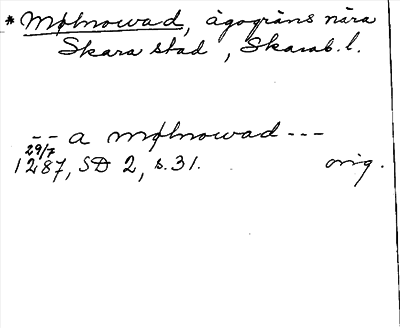 * Mølnowad, ägogräns nära
Skara stad, Skarab. l.
-- a mølnowad ---
29/7
1287, SD 2, s. 31. orig.